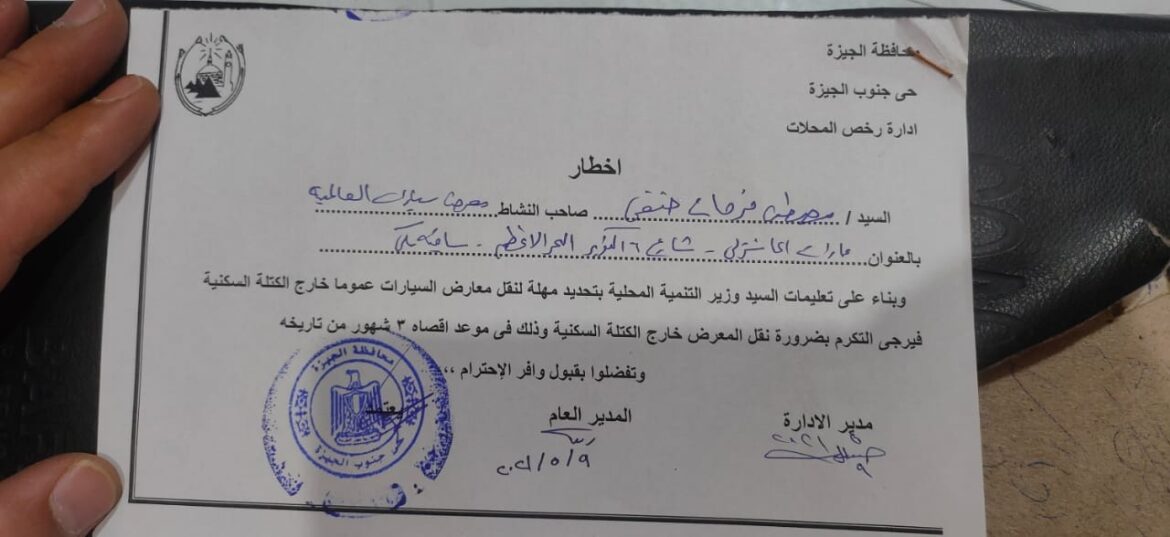 محافظة الجيزة
حى جنوب الجيزة
ادارة رخص المحلات
اخطار
السيد / مصطفى فرحات حنفي صاحب النشاط معرض سيارات العالمية
بالعنوان عمارات - شارع ٦ اكتوبر البحر الاعظم - ساقية مكي
وبناء على تعليمات السيد وزير التنمية المحلية بتحديد مهلة لنقل معارض السيارات عموما خارج الكتلة السكنية
فيرجى التكرم بضرورة نقل المعرض خارج الكتلة السكنية وذلك فى موعد اقصاه ٣ شهور من تاريخه
وتفضلوا بقبول وافر الإحترام ،،
مدير الادارة
المدير العام
يعتمد
٢٠٢١/٥/٩
محافظة الجيزة
حى جنوب الجيزة